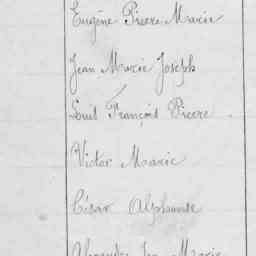 Eugène Pierre Marie
Jean Marie Joseph
Louis François Pierre
Victor Marie
César Alphonse
Alexandre Jean Marie